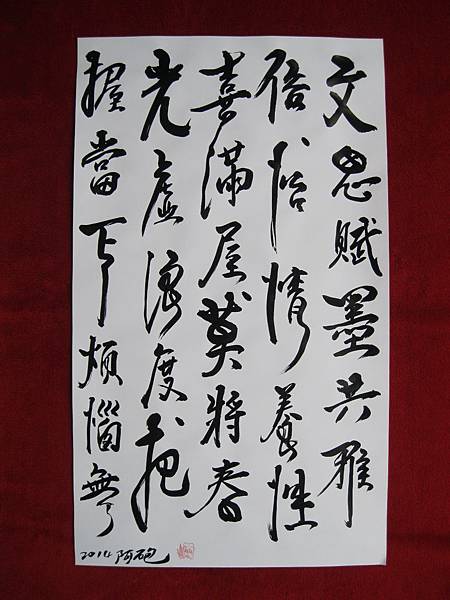 文思賦墨共雅
俗怡情養性
喜滿屋莫將春
光虛浪度把
握當下煩惱無
2014 阿砲